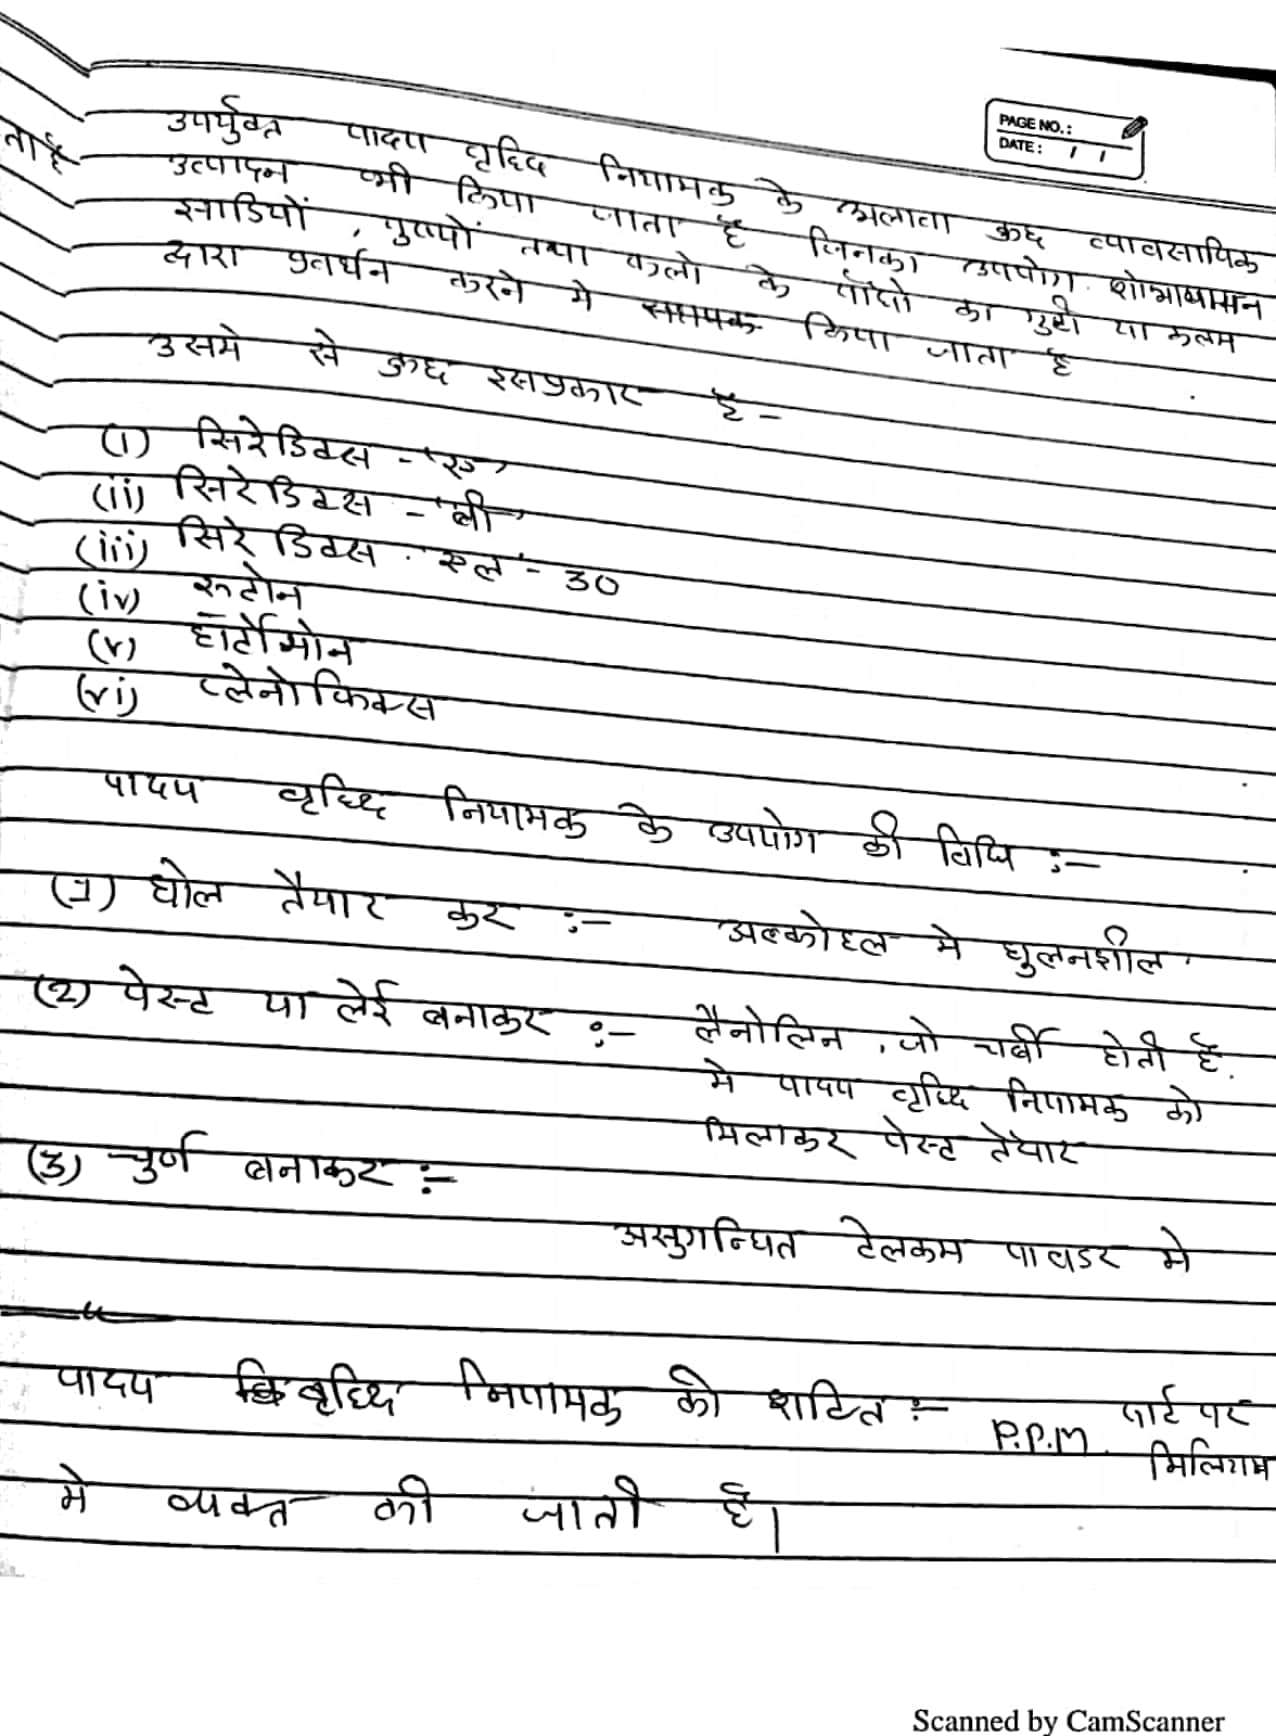 PAGE NO.:
DATE: / /
ता है
उपर्युक्त पादप वृध्दि नियामक के अलावा कुछ व्यावसायिक
उत्पादन भी किया जाता है जिनका उपयोग शोभायमान
झाडियों, पुष्पों तथा फलो के पौधो का गुटी या कलम
द्वारा प्रवर्धन करने मे सहायक किया जाता है
उसमे से कुछ इसप्रकार है -
(i) सिरेडिक्स - 'ए'
(ii) सिरेडिक्स - 'बी'
(iii) सिरेडिक्स . एल - 30
(iv) रूटोन
(v) हॉर्टोमोन
(vi) प्लेनोफिक्स
पादप वृध्दि नियामक के उपयोग की विधि :-
(1) घोल तैयार कर :- अल्कोहल मे घुलनशील
(2) पेस्ट या लेई बनाकर :- लैनोलिन, जो चर्बी होती है.
मे पादप वृध्दि नियामक को
मिलाकर पेस्ट तैयार
(3) चुर्ण बनाकर :-
असुगन्धित टेलकम पावडर मे
पादप वृध्दि नियामक की शक्ति :- P.P.M. पार्ट पर
मिलिग्राम
मे व्यक्त की जाती है।
Scanned by CamScanner